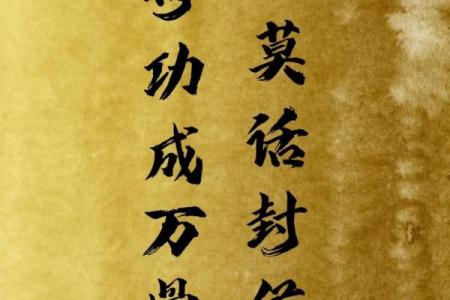 莫话封侯
功成万